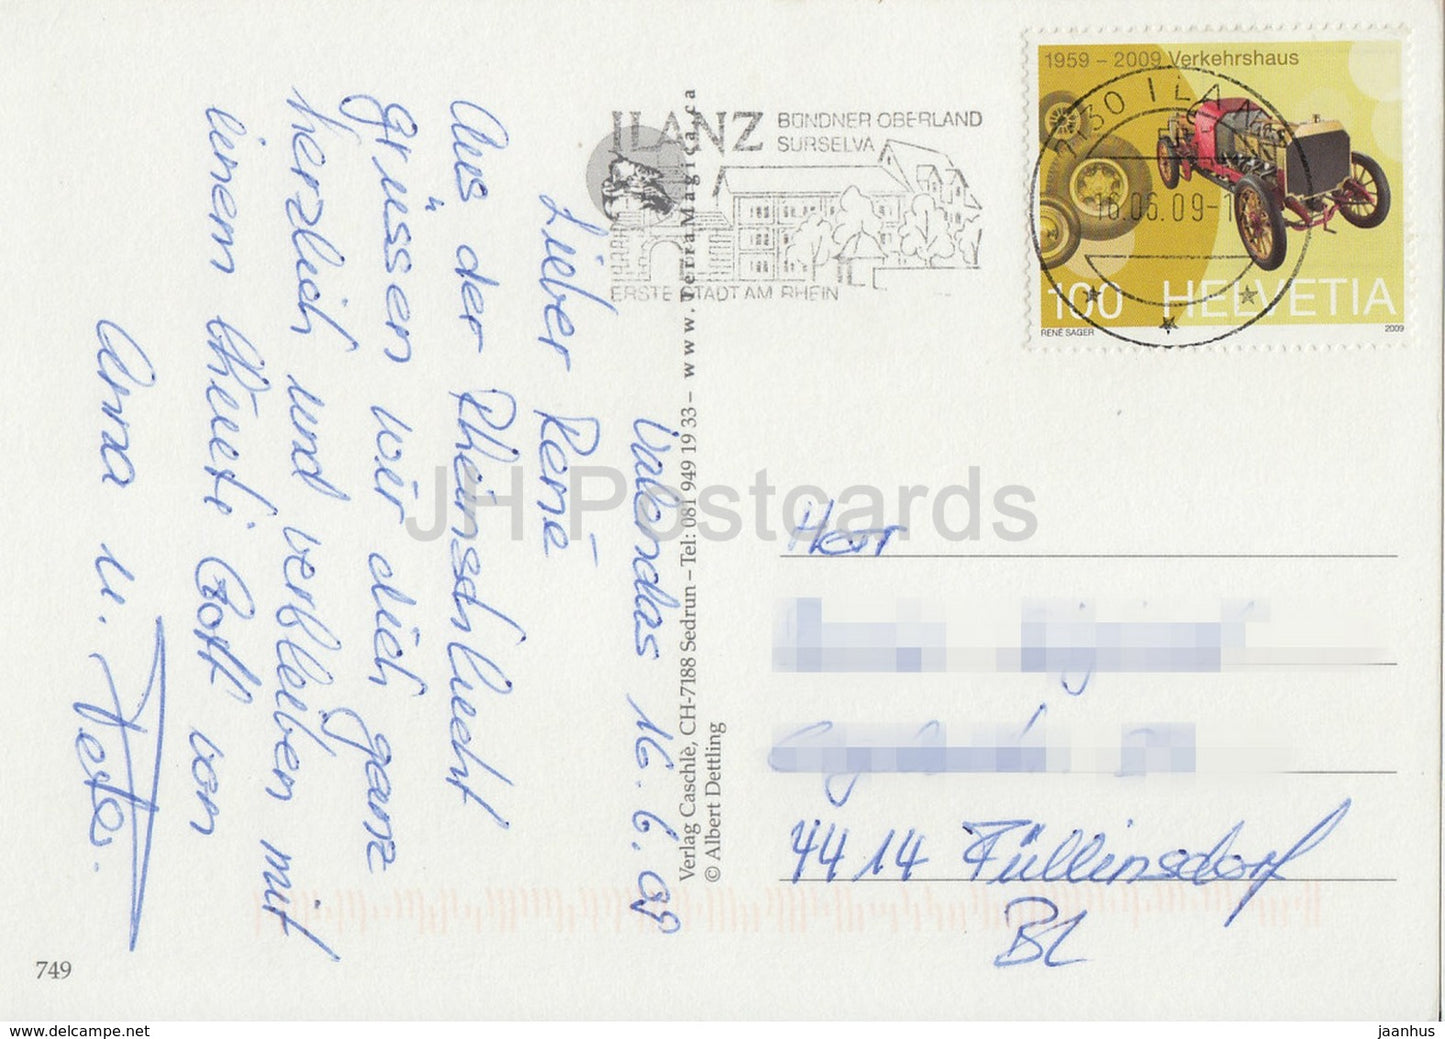 1959 – 2009 Verkehrshaus
7130 ILANZ
16.06.09-1
100 HELVETIA
RENÉ SAGER
2009
ILANZ
BÜNDNER OBERLAND
SURSELVA
ERSTE STADT AM RHEIN
Valendas 16.6.09
Lieber René
Aus der Rheinschlucht
grüssen wir dich ganz
herzlich und verbleiben mit
einem
Gott von
Anna u. Peter.
Verlag Caschlè, CH-7188 Sedrun – Tel: 081 949 19 33 – www.TerraMagica.ca
© Albert Dettling
JH Postcards
Herr
4414 Füllinsdorf
BL
749
www.delcampe.net
jaanhus